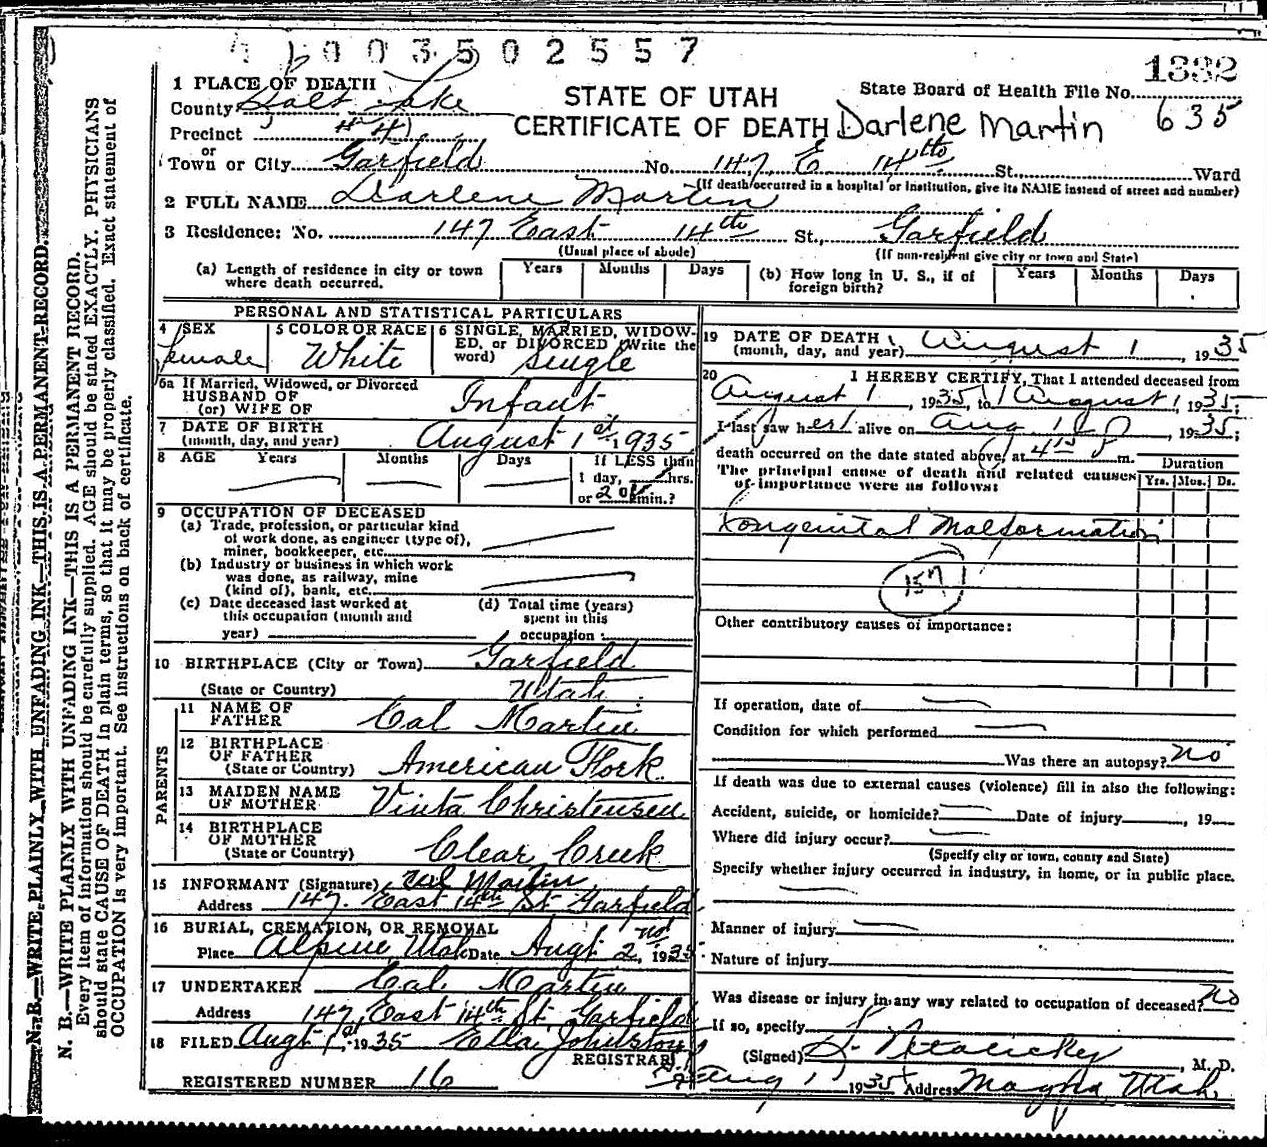 003502557
1332
1 PLACE OF DEATH
STATE OF UTAH
State Board of Health File No. 635
County Salt Lake
CERTIFICATE OF DEATH Darlene Martin
Precinct
or
Town or City Garfield No. 147 E 14th St. Ward
(If death occurred in a hospital or institution, give its NAME instead of street and number)
2 FULL NAME Darlene Martin
3 Residence: No. 147 East 14th St., Garfield
(Usual place of abode) (If non-resident give city or town and State)
(a) Length of residence in city or town where death occurred. Years Months Days (b) How long in U. S., if of foreign birth? Years Months Days
PERSONAL AND STATISTICAL PARTICULARS
4 SEX female
5 COLOR OR RACE White
6 SINGLE, MARRIED, WIDOWED, or DIVORCED (Write the word) single
6a If Married, Widowed, or Divorced
HUSBAND OF
(or) WIFE OF Infant
7 DATE OF BIRTH
(month, day, and year) August 1st 1935
8 AGE Years Months Days If LESS than
1 day, hrs.
or 20 min.?
9 OCCUPATION OF DECEASED
(a) Trade, profession, or particular kind
of work done, as engineer (type of),
miner, bookkeeper, etc.
(b) Industry or business in which work
was done, as railway, mine
(kind of), bank, etc.
(c) Date deceased last worked at
this occupation (month and
year)
(d) Total time (years)
spent in this
occupation
10 BIRTHPLACE (City or Town) Garfield
(State or Country) Utah
PARENTS
11 NAME OF
FATHER Cal Martin
12 BIRTHPLACE
OF FATHER
(State or Country) American Fork
13 MAIDEN NAME
OF MOTHER Vinta Christensen
14 BIRTHPLACE
OF MOTHER
(State or Country) Clear Creek
15 INFORMANT (Signature) Cal Martin
Address 147 East 14th St Garfield
16 BURIAL, CREMATION, OR REMOVAL
Place Alpine, Utah Date Augt 2nd, 1935
17 UNDERTAKER Cal Martin
Address 147 East 14th St. Garfield
18 FILED Augt 1st, 1935 Ella Johnston
REGISTRAR
REGISTERED NUMBER 16
19 DATE OF DEATH
(month, day, and year) August 1, 1935
20 I HEREBY CERTIFY, That I attended deceased from
August 1, 1935, to August 1, 1935;
I last saw her alive on Aug 1, 1935;
death occurred on the date stated above, at 4 15 P m.
The principal cause of death and related causes
of importance were as follows:
Duration
Yrs. Mos. Ds.
Congenital Malformation
157
Other contributory causes of importance:
If operation, date of
Condition for which performed
Was there an autopsy? no
If death was due to external causes (violence) fill in also the following:
Accident, suicide, or homicide? Date of injury , 19
Where did injury occur?
(Specify city or town, county and State)
Specify whether injury occurred in industry, in home, or in public place.
Manner of injury
Nature of injury
Was disease or injury in any way related to occupation of deceased? no
If so, specify
(Signed) , M. D.
Aug 1 1935 Address Magna, Utah
N. B.—WRITE PLAINLY WITH UNFADING INK—THIS IS A PERMANENT RECORD.
N. B.—WRITE PLAINLY WITH UNFADING INK—THIS IS A PERMANENT RECORD.
Every item of information should be carefully supplied. AGE should be stated EXACTLY. PHYSICIANS
should state CAUSE OF DEATH in plain terms, so that it may be properly classified. Exact statement of
OCCUPATION is very important. See instructions on back of certificate.